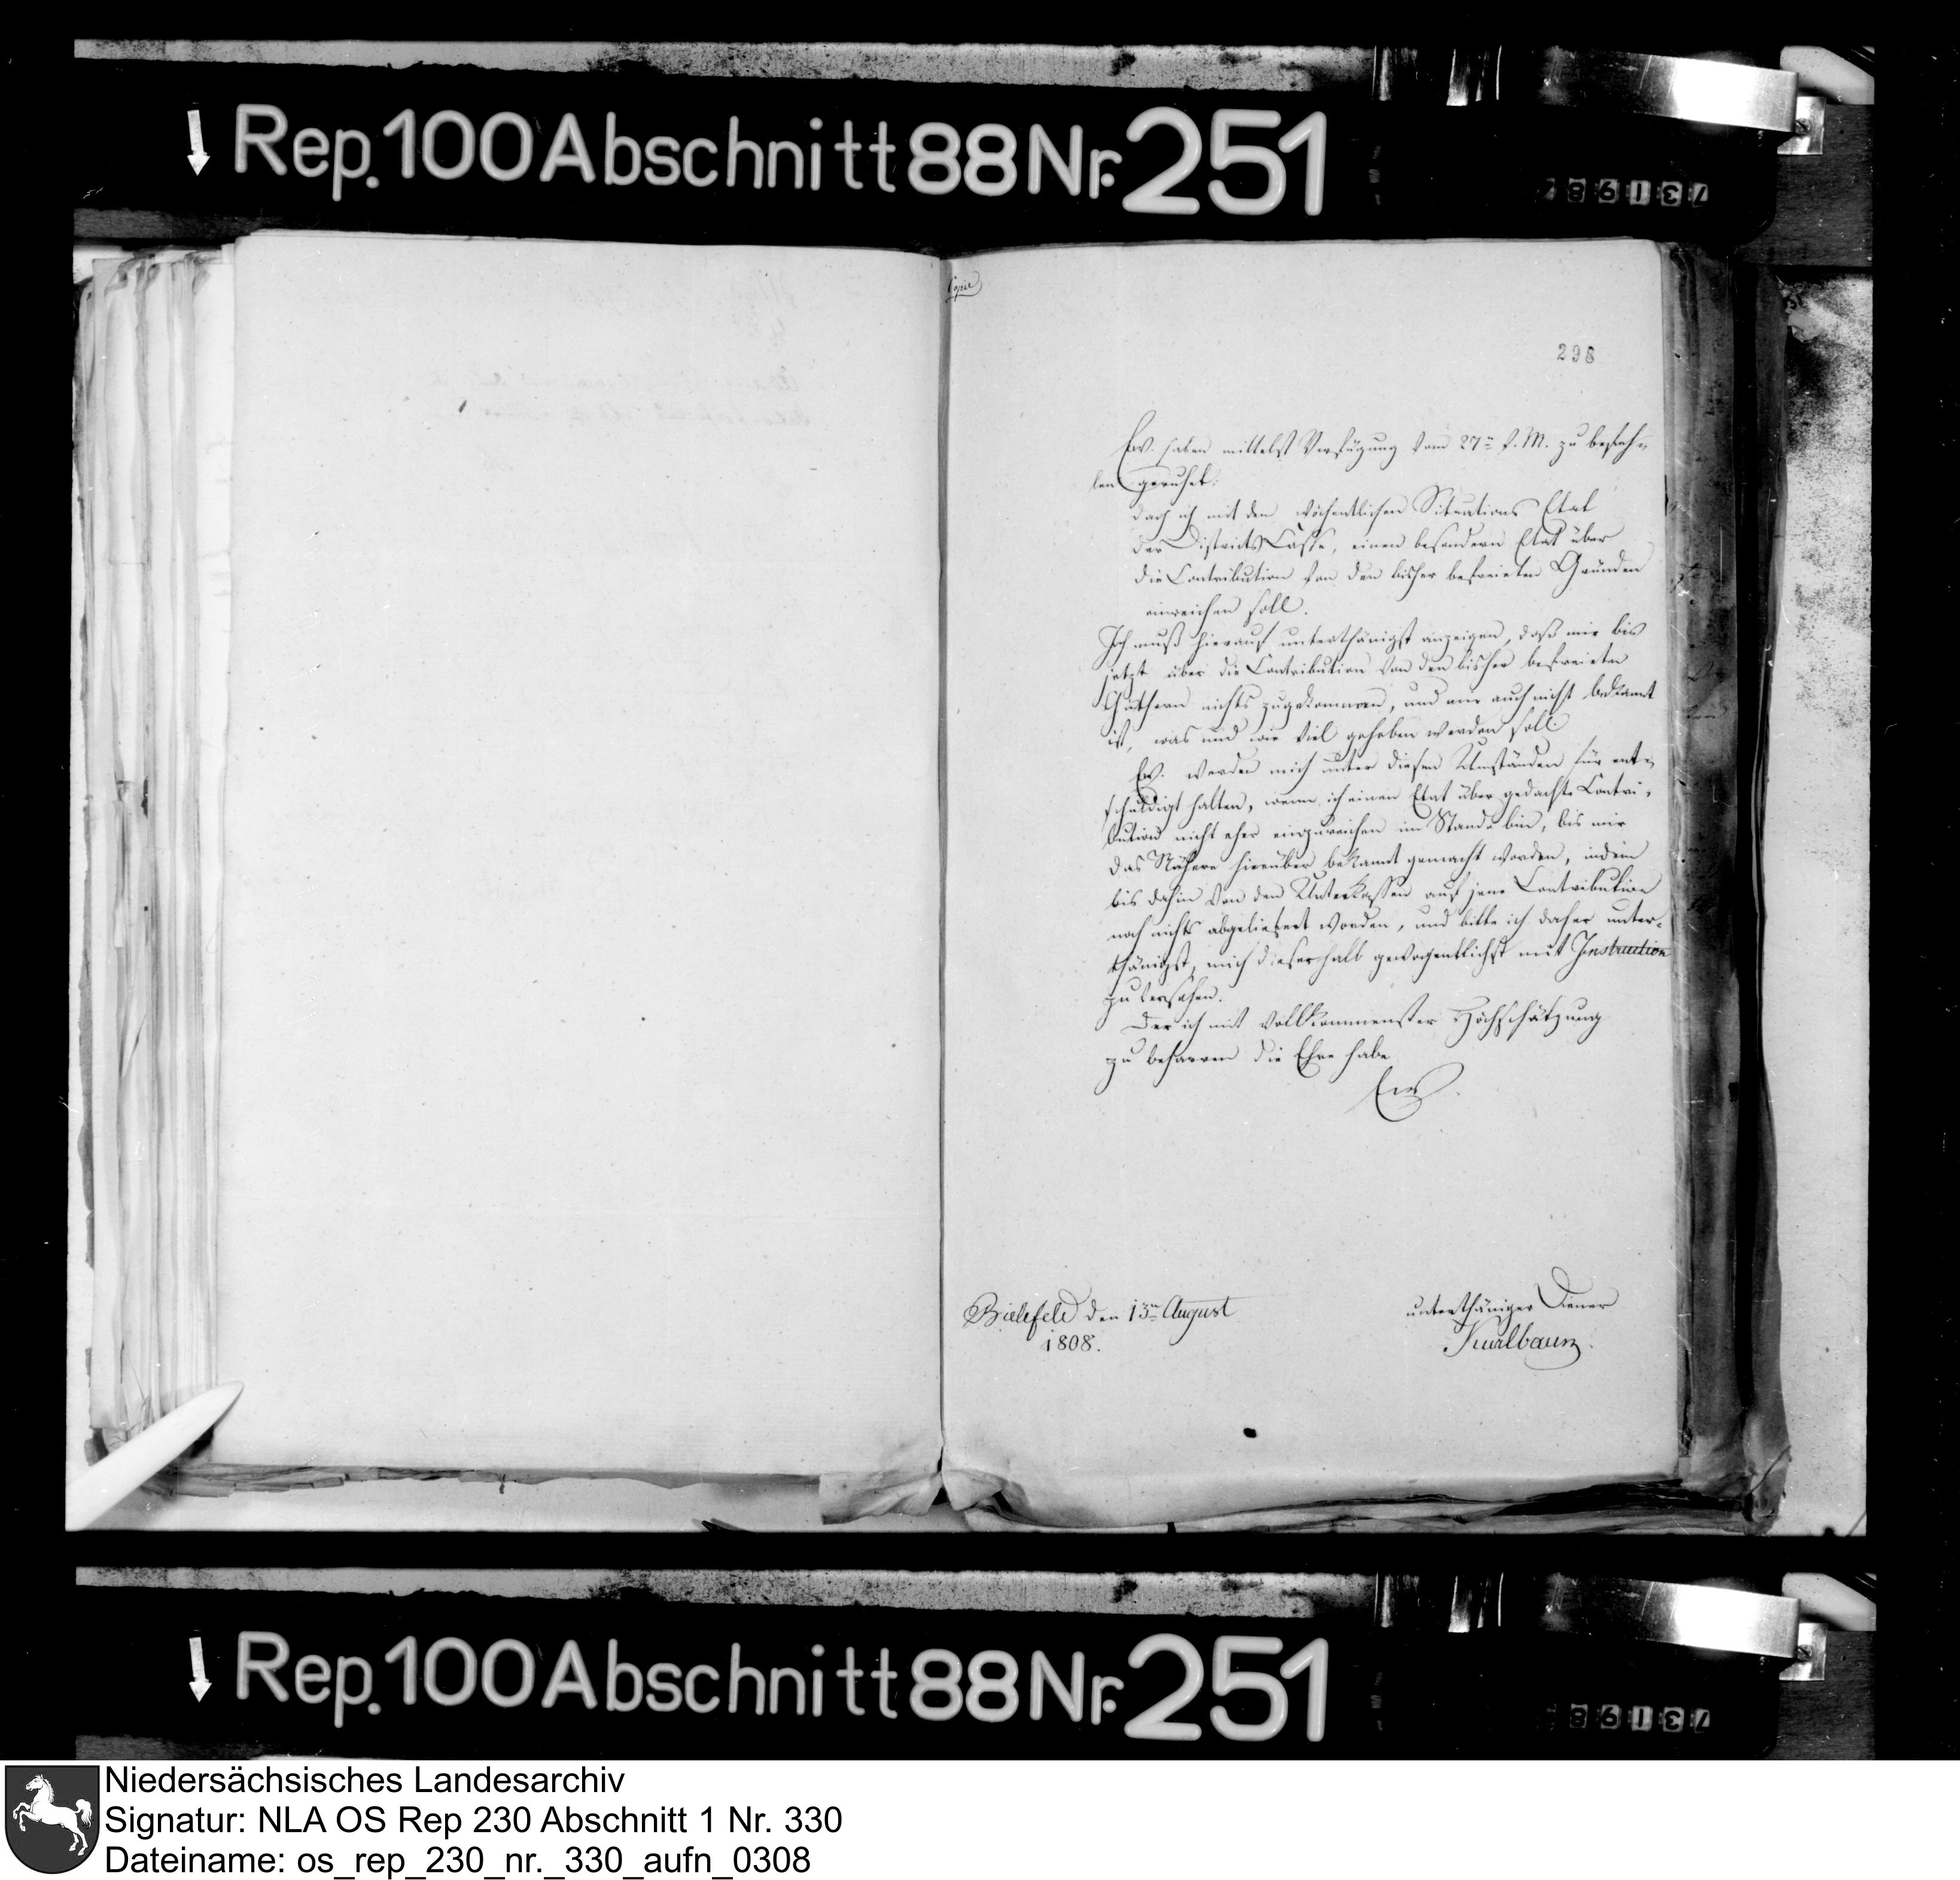 Rep. 100 Abschnitt 88 Nr. 251
731987
Copia
298
Ew. haben mittelst Verfügung vom 27ten v. M. zu befeh-
len geruhet:
daß ich mit den wöchentlichen Situations Etat
der Districts Casse, einen besondern Etat über
die Contribution von den bisher befreieten Gründen
einreichen soll.
Ich muß hierauf unterthänigst anzeigen, daß mir bis
jetzt über die Contribution von den bisher befreieten
Güthern nichts zugekommen, und mir auch nicht bekannt
ist, was und wie viel gehoben werden soll
Ew. werden mich unter diesen Umständen für ent-
schuldigt halten, wenn ich einen Etat über gedachte Contri-
bution nicht eher einzureichen im Stande bin, bis mir
das Nähere hierüber bekannt gemacht worden, indem
bis dahin von den Unterkassen auf jene Contribution
noch nichts abgeliefert worden, und bitte ich daher unter-
thänigst, mich dieserhalb gewogentlichst mit Instruction
zu versehen.
Der ich mit vollkommenster Hochschätzung
zu beharren die Ehre habe
Ew.
Bielefeld den 13ten August
1808.
unterthäniger Diener
Kurlbaum.
Rep. 100 Abschnitt 88 Nr. 251
Niedersächsisches Landesarchiv
Signatur: NLA OS Rep 230 Abschnitt 1 Nr. 330
Dateiname: os_rep_230_nr._330_aufn_0308